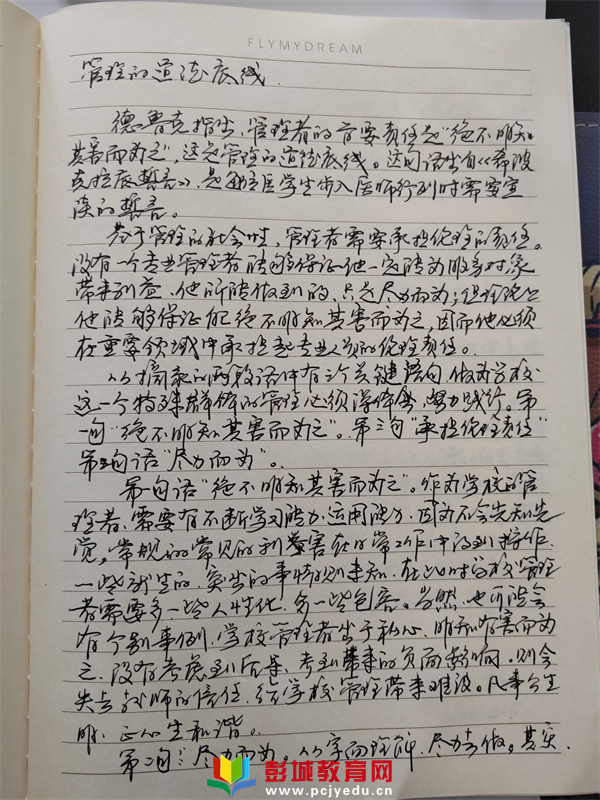 FLYMYDREAM
管理的道德底线
德鲁克指出，管理者的首要责任是“绝不明知
其害而为之”，这是管理的道德底线。这句话出自《希波
克拉底誓言》，是西医学生步入医师行列时需要宣
读的誓言。
基于管理的社会性，管理者需要承担伦理的责任。
没有一个专业管理者能够保证他一定能为服务对象
带来利益，他所能做到的，只是尽力而为；但理论上
他能够保证自己绝不明知其害而为之，因而他必须
在重要领域中承担起专业人员的伦理责任。
从摘录的两段话中有三个关键语句，做为学校
这一个特殊群体的管理必须深体会，努力践行。第
一句“绝不明知其害而为之”。第三句“承担伦理责任”
第二句话“尽力而为”。
第一句话“绝不明知其害而为之”。作为学校的管
理者，需要有不断学习能力、运用能力，因为不会先知先
觉，常规的常见的利害在日常工作中得到操作，
一些新生的、突出的事情则未知，在此时学校管理
者需要多一些人性化，多一些包容。当然，也可能会
有个别事例，学校管理者出于私心，明知有害而为
之，没有考虑到后果，考到带来的负面影响。则会
失去教师的信任，给学校管理带来难设。凡事公生
明，正心生和谐。
第二句：尽力而为。从字面理解，尽力去做。其实，
彭城教育网
www.pcjyedu.cn